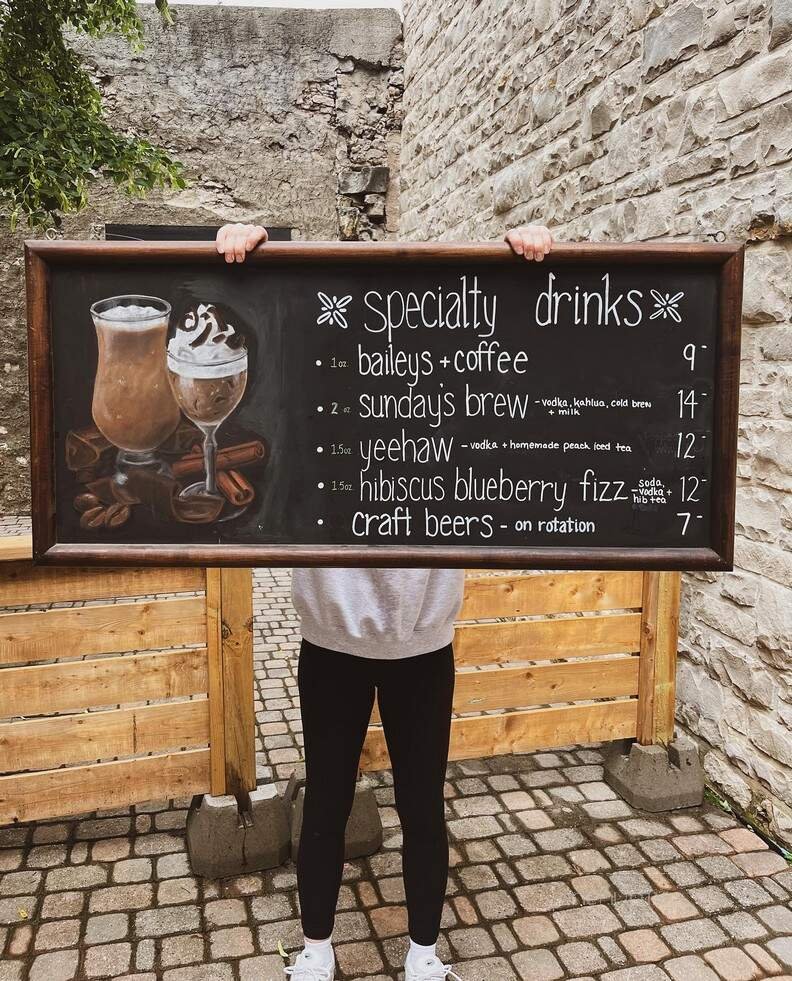 specialty drinks
• 1 oz. baileys + coffee 9-
• 2 oz sunday's brew - vodka, kahlua, cold brew 14-
+ milk
• 1.5oz yeehaw - vodka + homemade peach iced tea 12-
• 1.5oz hibiscus blueberry fizz - soda, vodka + hib tea 12-
• craft beers - on rotation 7-